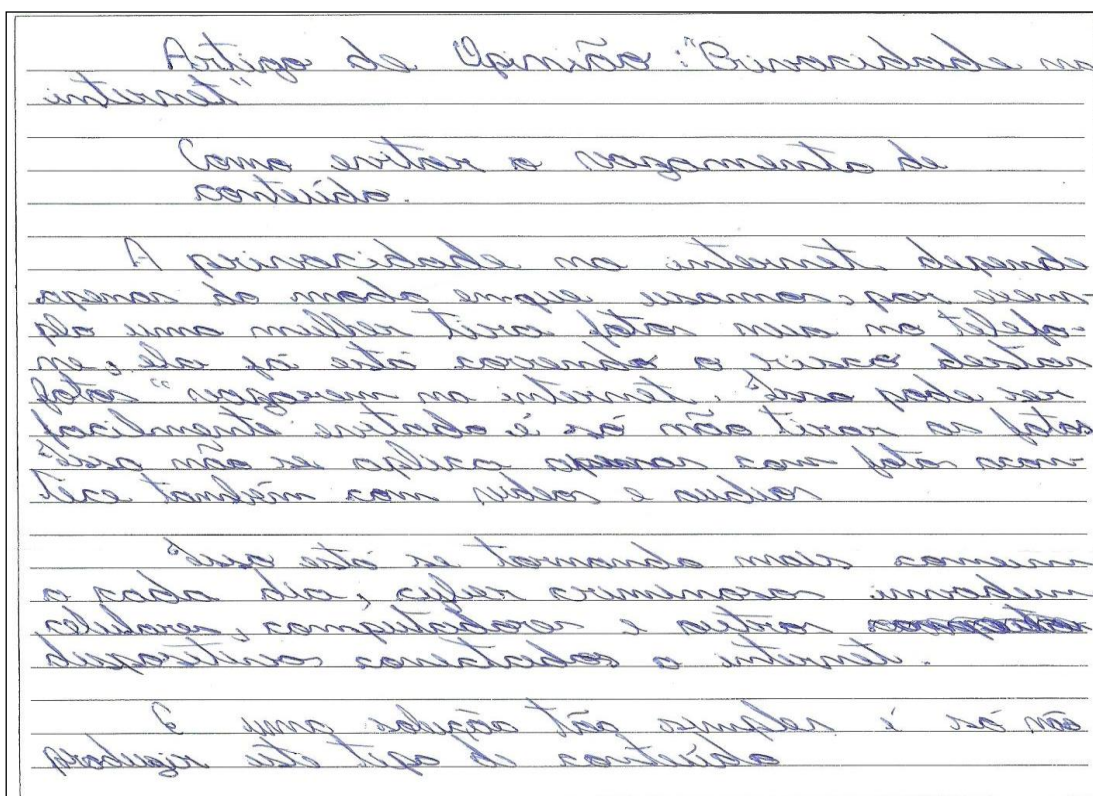 Artigo de Opinião: "Privacidade na
internet"
Como evitar o vazamento de
conteúdo.
A privacidade na internet depende
apenas do modo que usamos, por exem-
plo uma mulher tira fotos nua no telefo-
ne, ela já está correndo o risco destas
fotos "vazarem" na internet. Isso pode ser
evitado, é só não tirar as fotos
Isso não se aplica apenas com fotos acon-
tece também com vídeos e audios
Isso está se tornando mais comum
a cada dia, criminosos invadem
celulares, computadores e outros
dispositivos conectados a internet.
E uma solução tão simples é só não
produzir este tipo d conteúdo